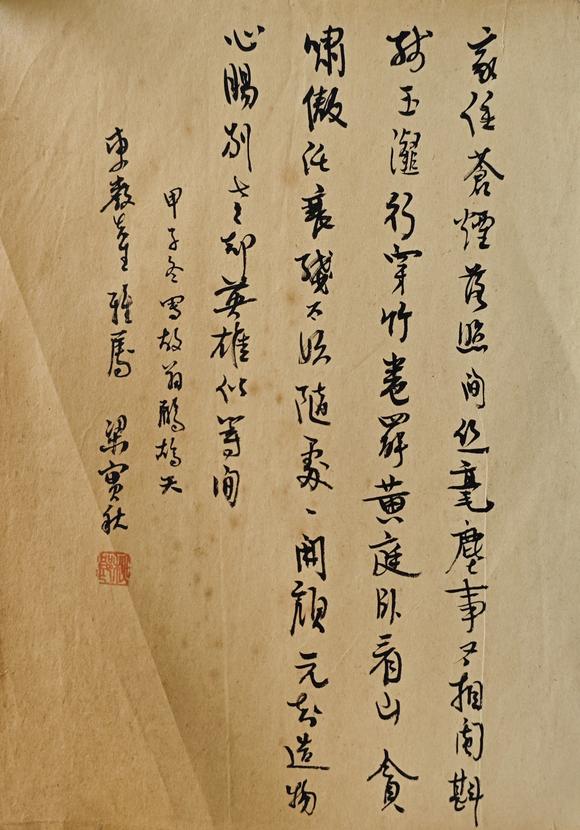 家住蒼煙落照間丝毫塵事不相関斟
残玉瀣行穿竹卷罷黄庭卧看山貪
嘯傲任衰殘不妨隨處一開顔元知造物
心腸别老却英雄似等闲
甲子冬寫放翁鷓鴣天
東先生雅屬 梁實秋